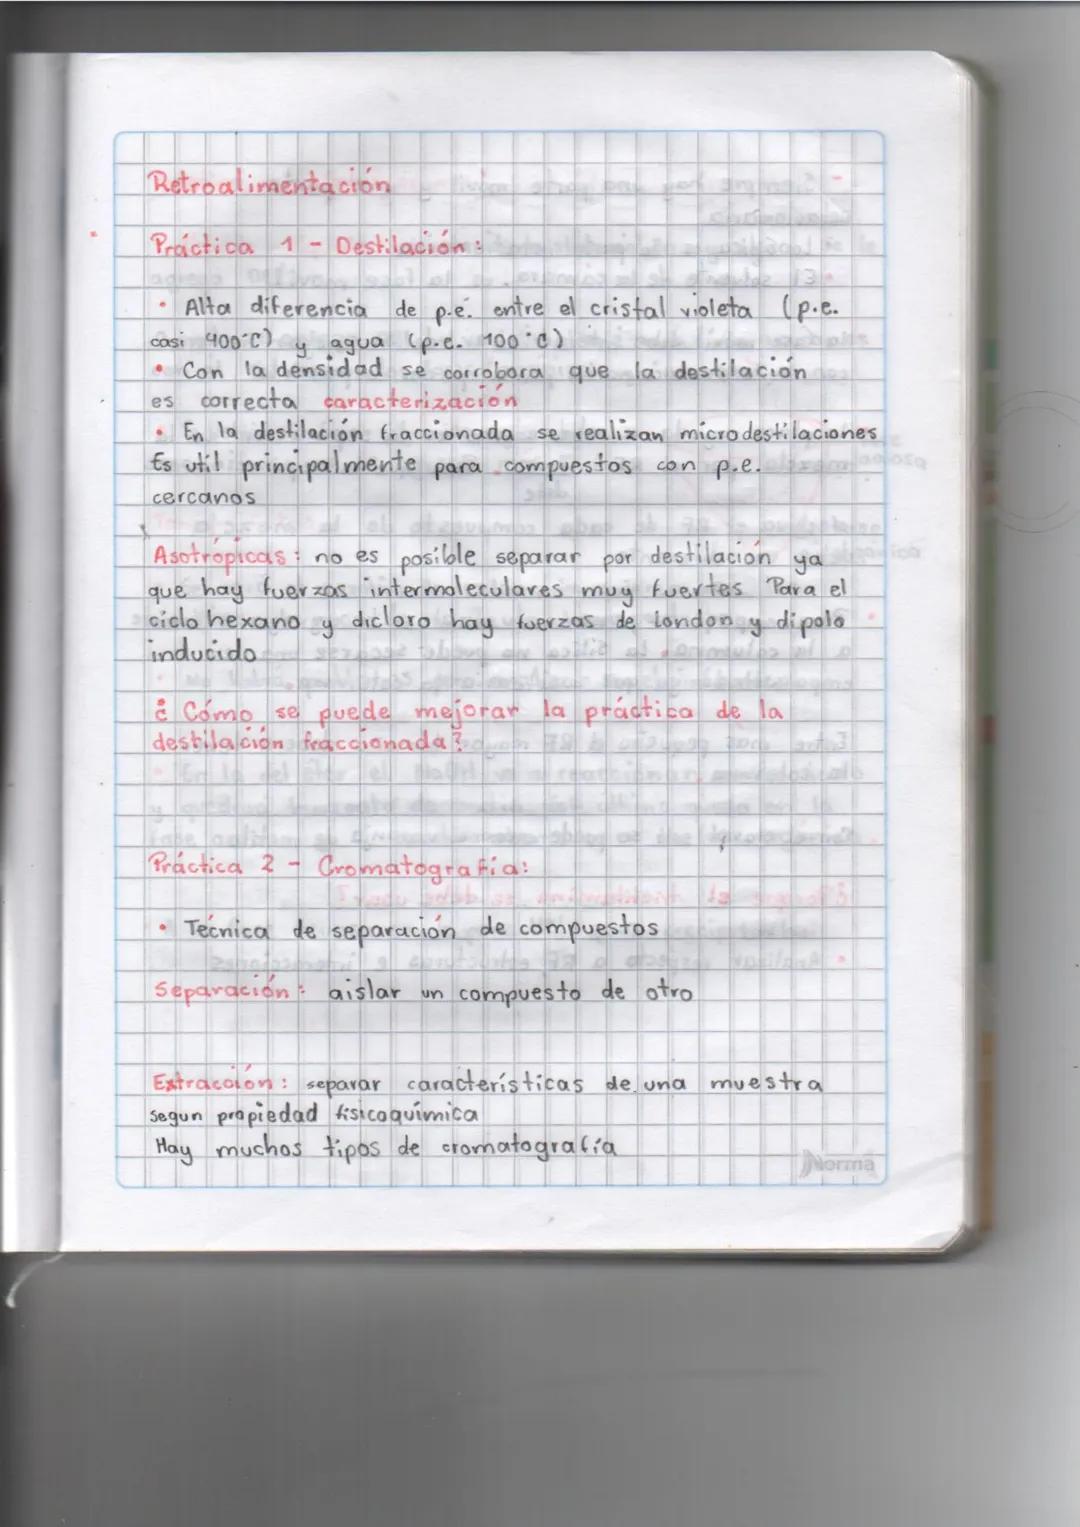 Retroalimentación
Práctica 1 - Destilación:
• Alta diferencia de p.e. entre el cristal violeta (p.e.
casi 400°C) y agua (p.e. 100°C)
• Con la densidad se corrobora que la destilación
es correcta caracterización
• En la destilación fraccionada se realizan microdestilaciones
Es util principalmente para compuestos con p.e.
cercanos
Asotrópicas: no es posible separar por destilación ya
que hay fuerzas intermoleculares muy fuertes Para el
ciclo hexano y dicloro hay fuerzas de london y dipolo
inducido
¿Cómo se puede mejorar la práctica de la
destilación fraccionada?
Práctica 2 - Cromatografía:
• Técnica de separación de compuestos
Separación: aislar un compuesto de otro
Extracción: separar características de una muestra
segun propiedad fisicoquímica
Hay muchos tipos de cromatografía
Norma